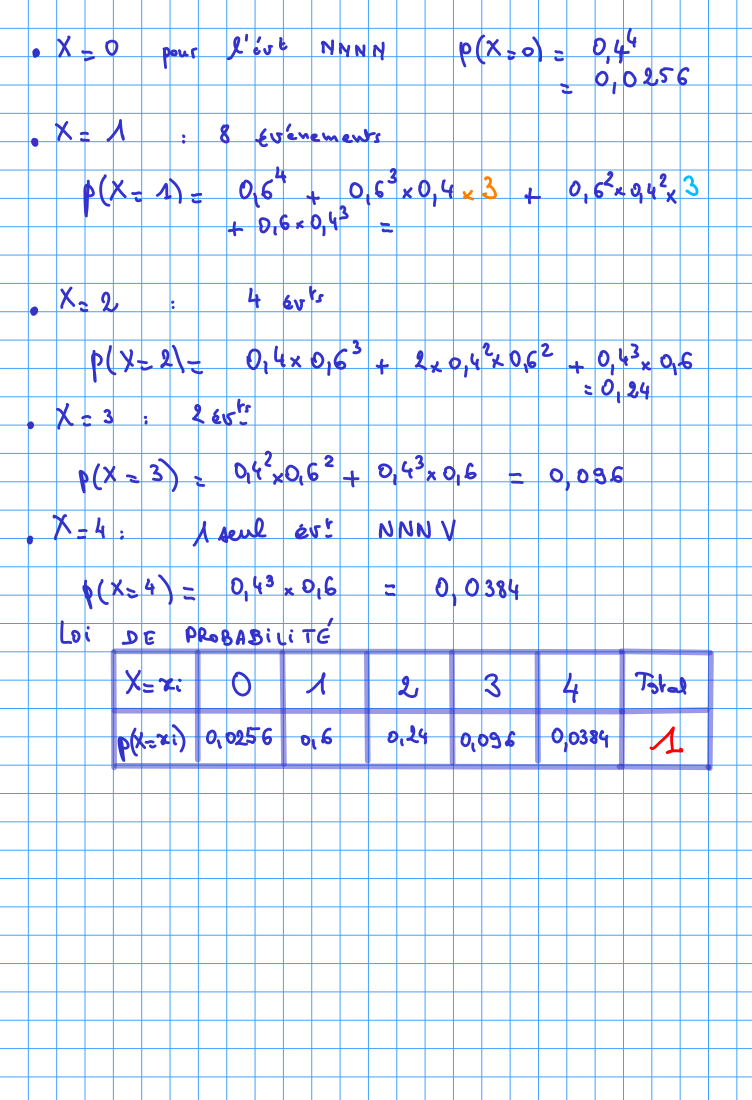 • X = 0 pour l'évt NNNN p(X=0) = 0,4⁴
= 0,0256
• X = 1 : 8 événements
p(X = 1) = 0,6⁴ + 0,6³ × 0,4 × 3 + 0,6² × 0,4² × 3
+ 0,6 × 0,4³ =
• X = 2 : 4 évts
p(X = 2) = 0,4 × 0,6³ + 2 × 0,4² × 0,6² + 0,4³ × 0,6
= 0,24
• X = 3 : 2 évts
p(X = 3) = 0,4² × 0,6² + 0,4³ × 0,6 = 0,096
• X = 4 : 1 seul évt NNNV
p(X = 4) = 0,4³ × 0,6 = 0,0384
LOI DE PROBABILITÉ
X = xi 0 1 2 3 4 Total
p(X=xi) 0,0256 0,6 0,24 0,096 0,0384 1